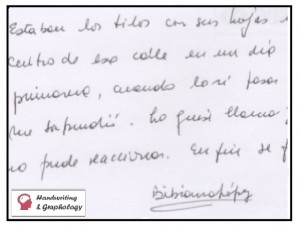 Estaban los tilos con sus hojas
centro de esa calle en un día
primavera, cuando lo vi pasar
me sorprendió. Lo quise llamar
no pude reaccionar. En fin se f
Bibiana López
Handwriting
& Graphology